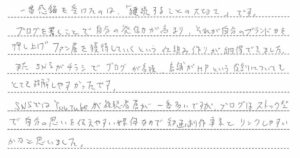 一番感銘を受けたのは、「継続することの大切さ」です。
ブログを書くことで自分の発信力が高まり、それが自分のブランド力を
押し上げファン層を獲得していくという仕組み作りが納得できました。
またSNSがチラシでブログが店、HPという例えについても
とても理解しやすかったです。
SNSではYouTubeが一番多いですが、ブログはストック型
で自分の思いを伝えやすい媒体なので動画制作事業とリンクしやすい
かなと思いました。